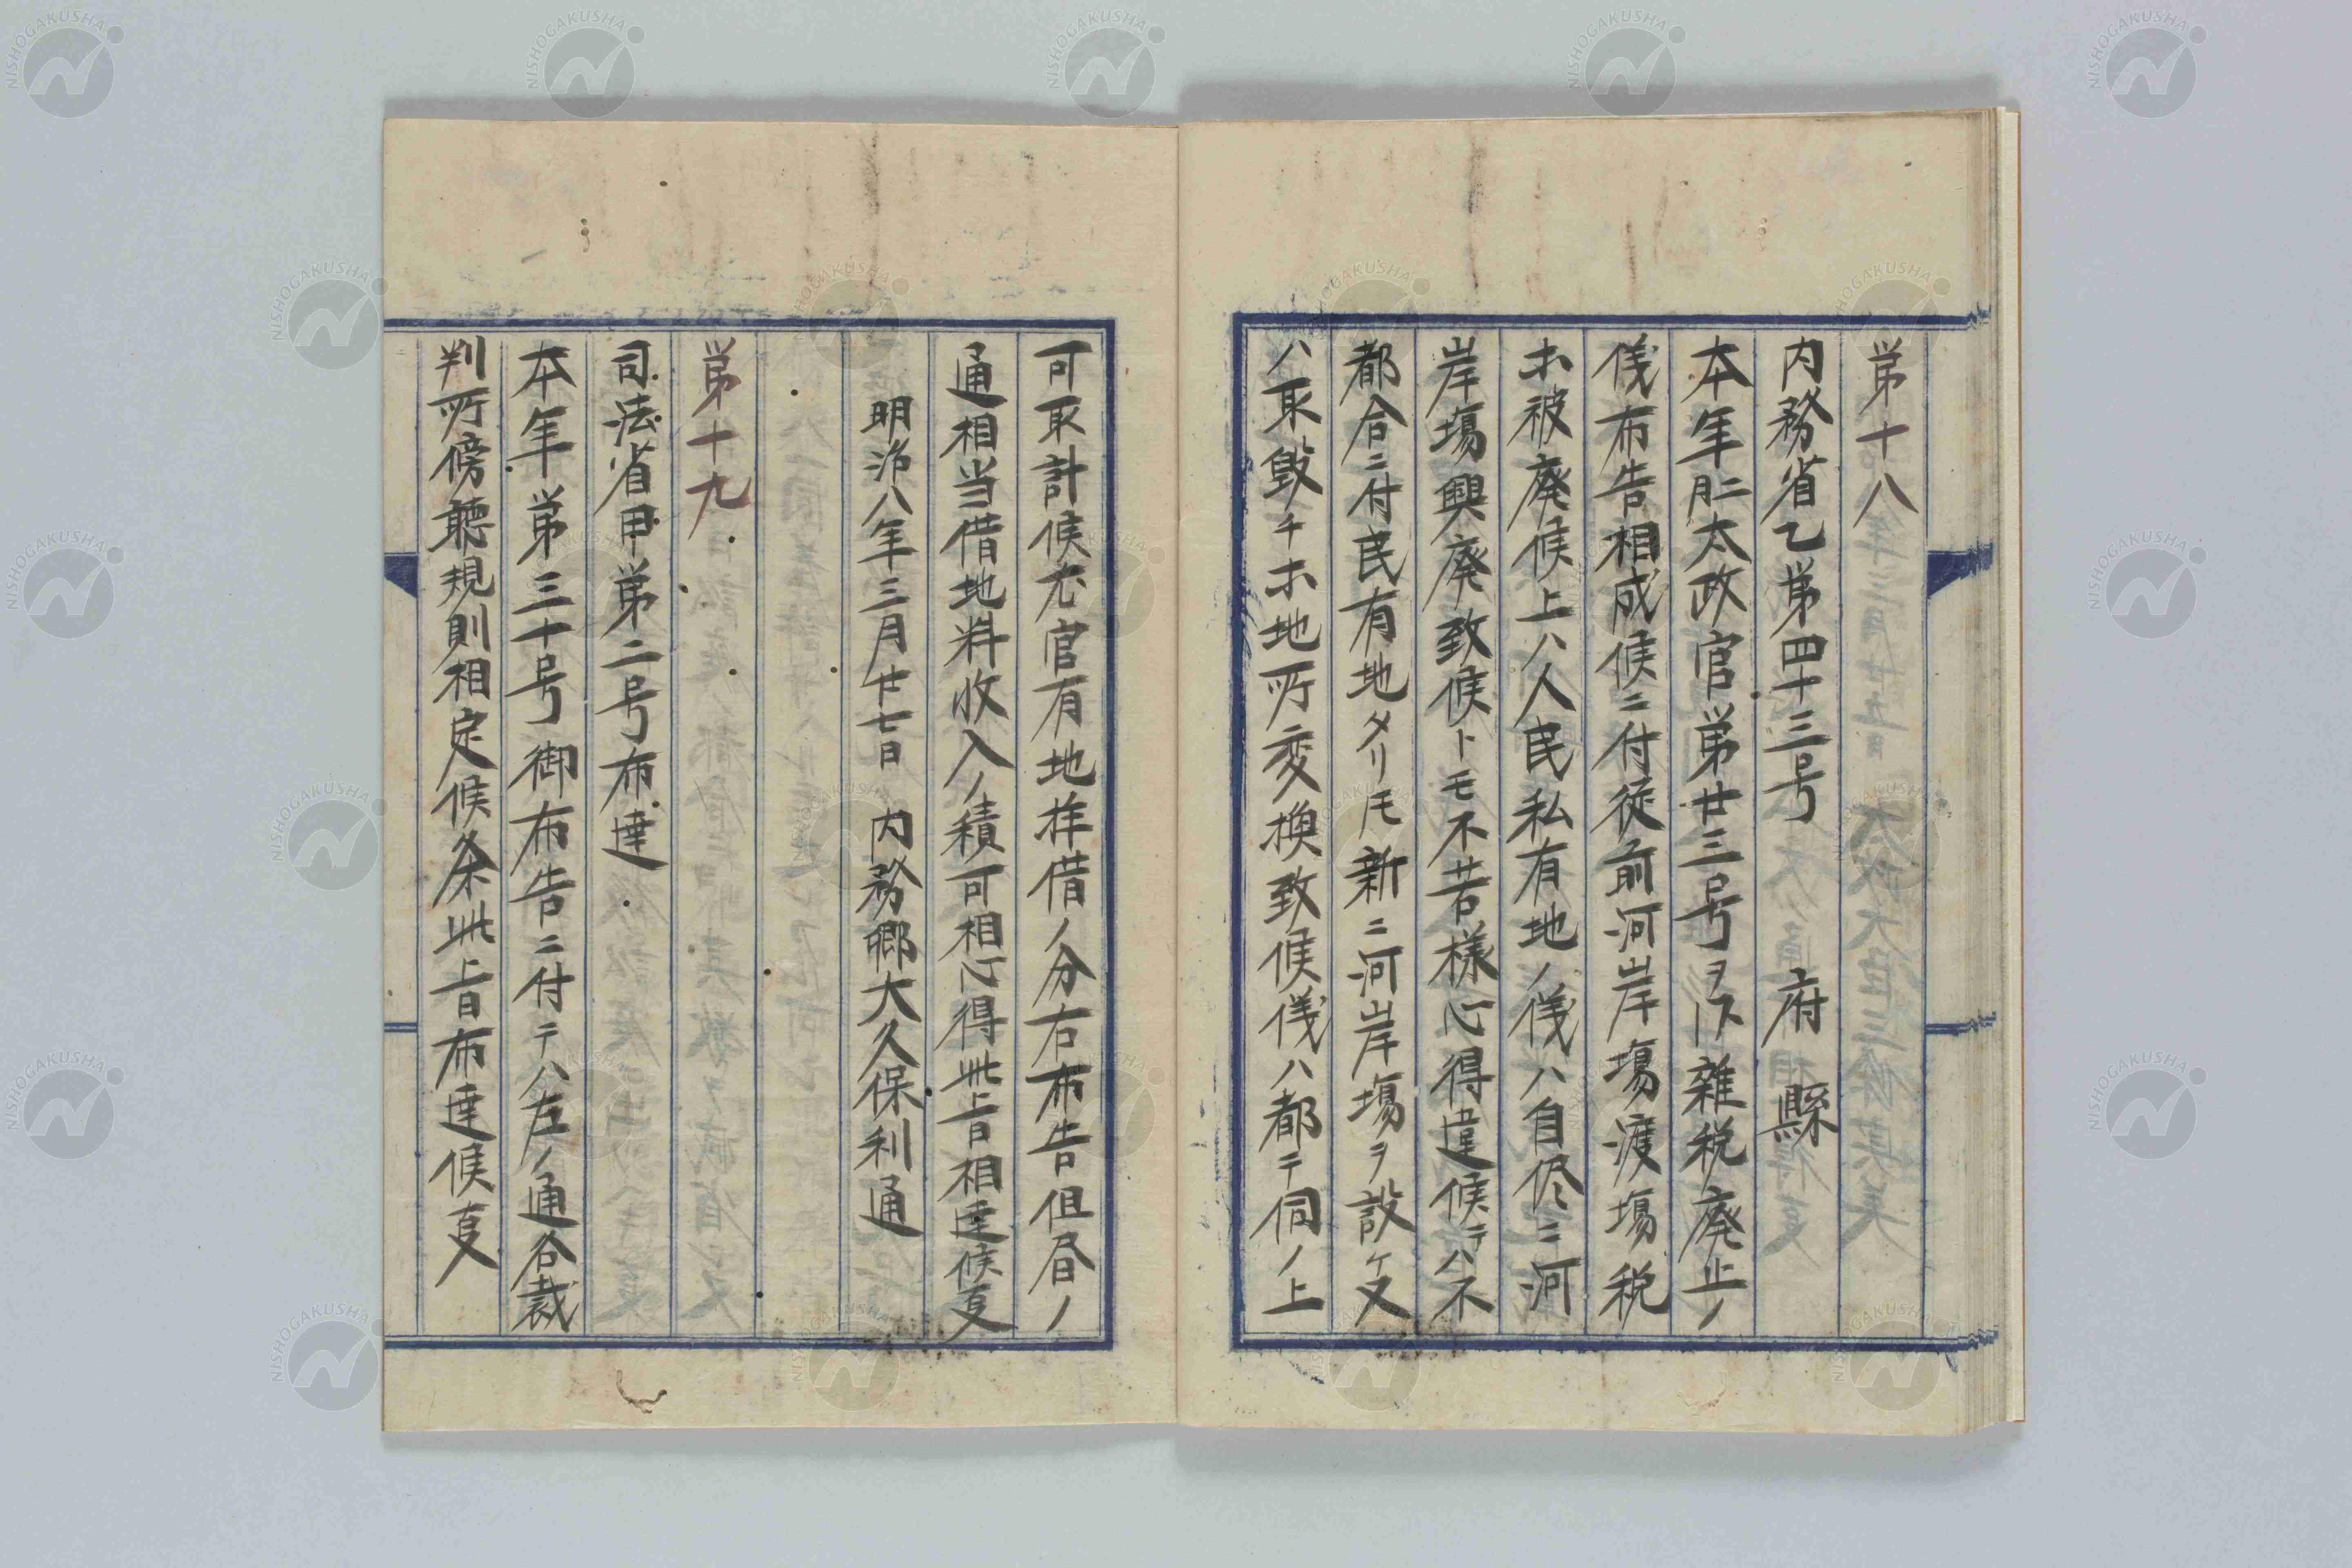 第十八
内務省乙第四十三号 府 縣
本年二月太政官第廿三号ヲ以雑税廃止ノ
儀布告相成候ニ付従前河岸場渡場税
木被廃候上ハ人民私有地ノ儀ハ自侭ニ河
岸場興廃致候トモ不苦様心得違候テハ不
都合ニ付民有地タリ𪜈新ニ河岸場ヲ設ケ又
ハ取毀チ木地所変換致候儀ハ都テ伺ノ上
可取計候尤官有地拝借ノ分右布告但昼ノ
通相当借地料收入ノ積可相心得此旨相達候叓
明治八年三月廿七日 内務卿大久保利通
第十九
司法省甲第二号布達
本年第三十号御布告ニ付テハ左ノ通各裁
判所傍聽規則相定候条此旨布達候叓